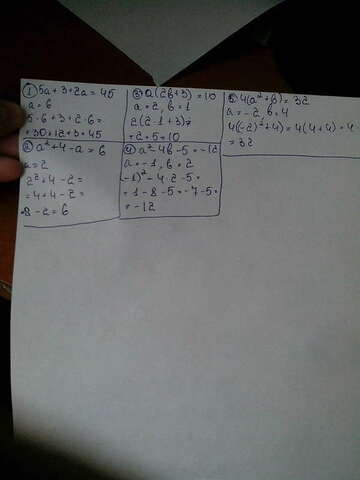 ① 5a+3+2a=45
a=6
5·6+3+2·6=
=30+12+3=45
② a²+4-a=6
a=2
2²+4-2=
=4+4-2=
8-2=6
③ a(2b+3)=10
a=2, b=1
2(2·1+3)=
=2·5=10
④ a²-4b-5=-12
a=-1, b=2
-1)²-4·2-5=
=1-8-5=-7-5=
=-12
⑤ 4(a²+b)=32
a=-2, b=4
4((-2)²+4)=4(4+4)=4·
=32